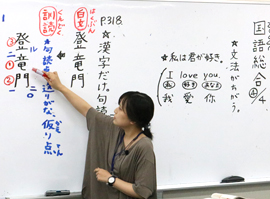 国語総合
☆文法がちがう。
☆私は君が好き。
I love you.
我 愛 你
P.318
☆漢字だけ。句読
白文
はくぶん
登竜門
訓読
くんどく
登竜門
ル
二
一
③
①
②
☆句読点
送りがな、